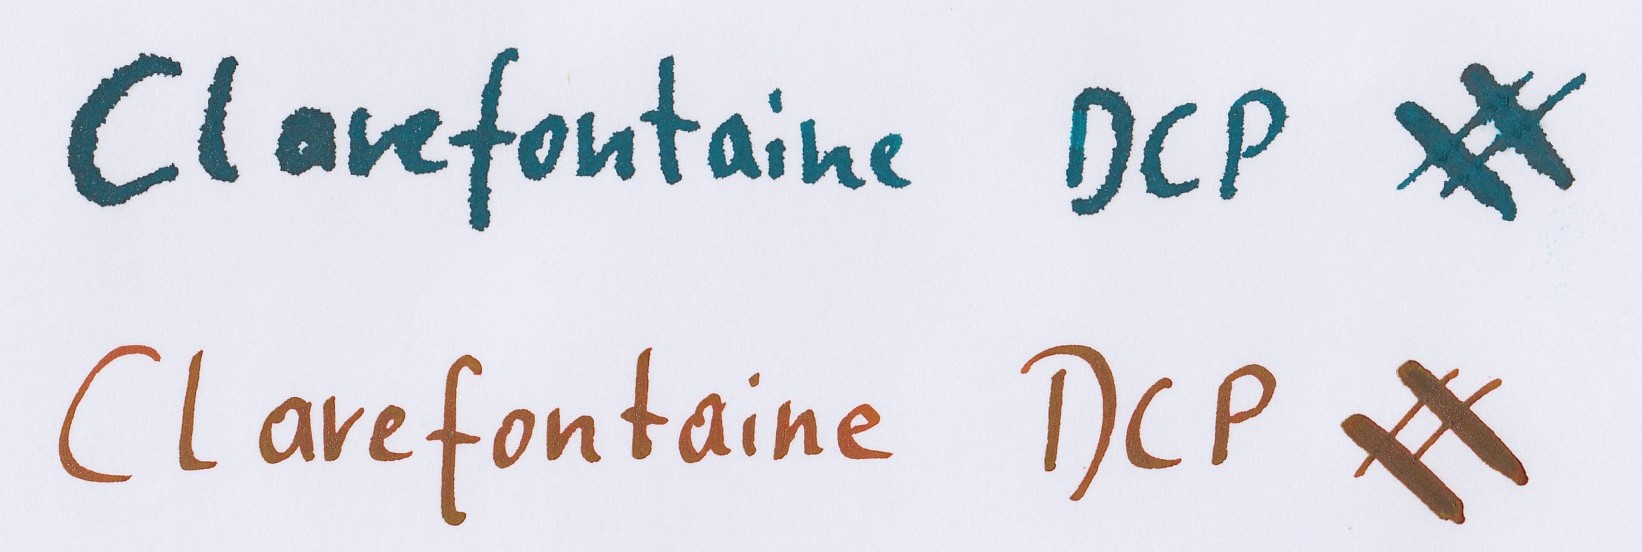 Clarefontaine DCP
Clarefontaine DCP